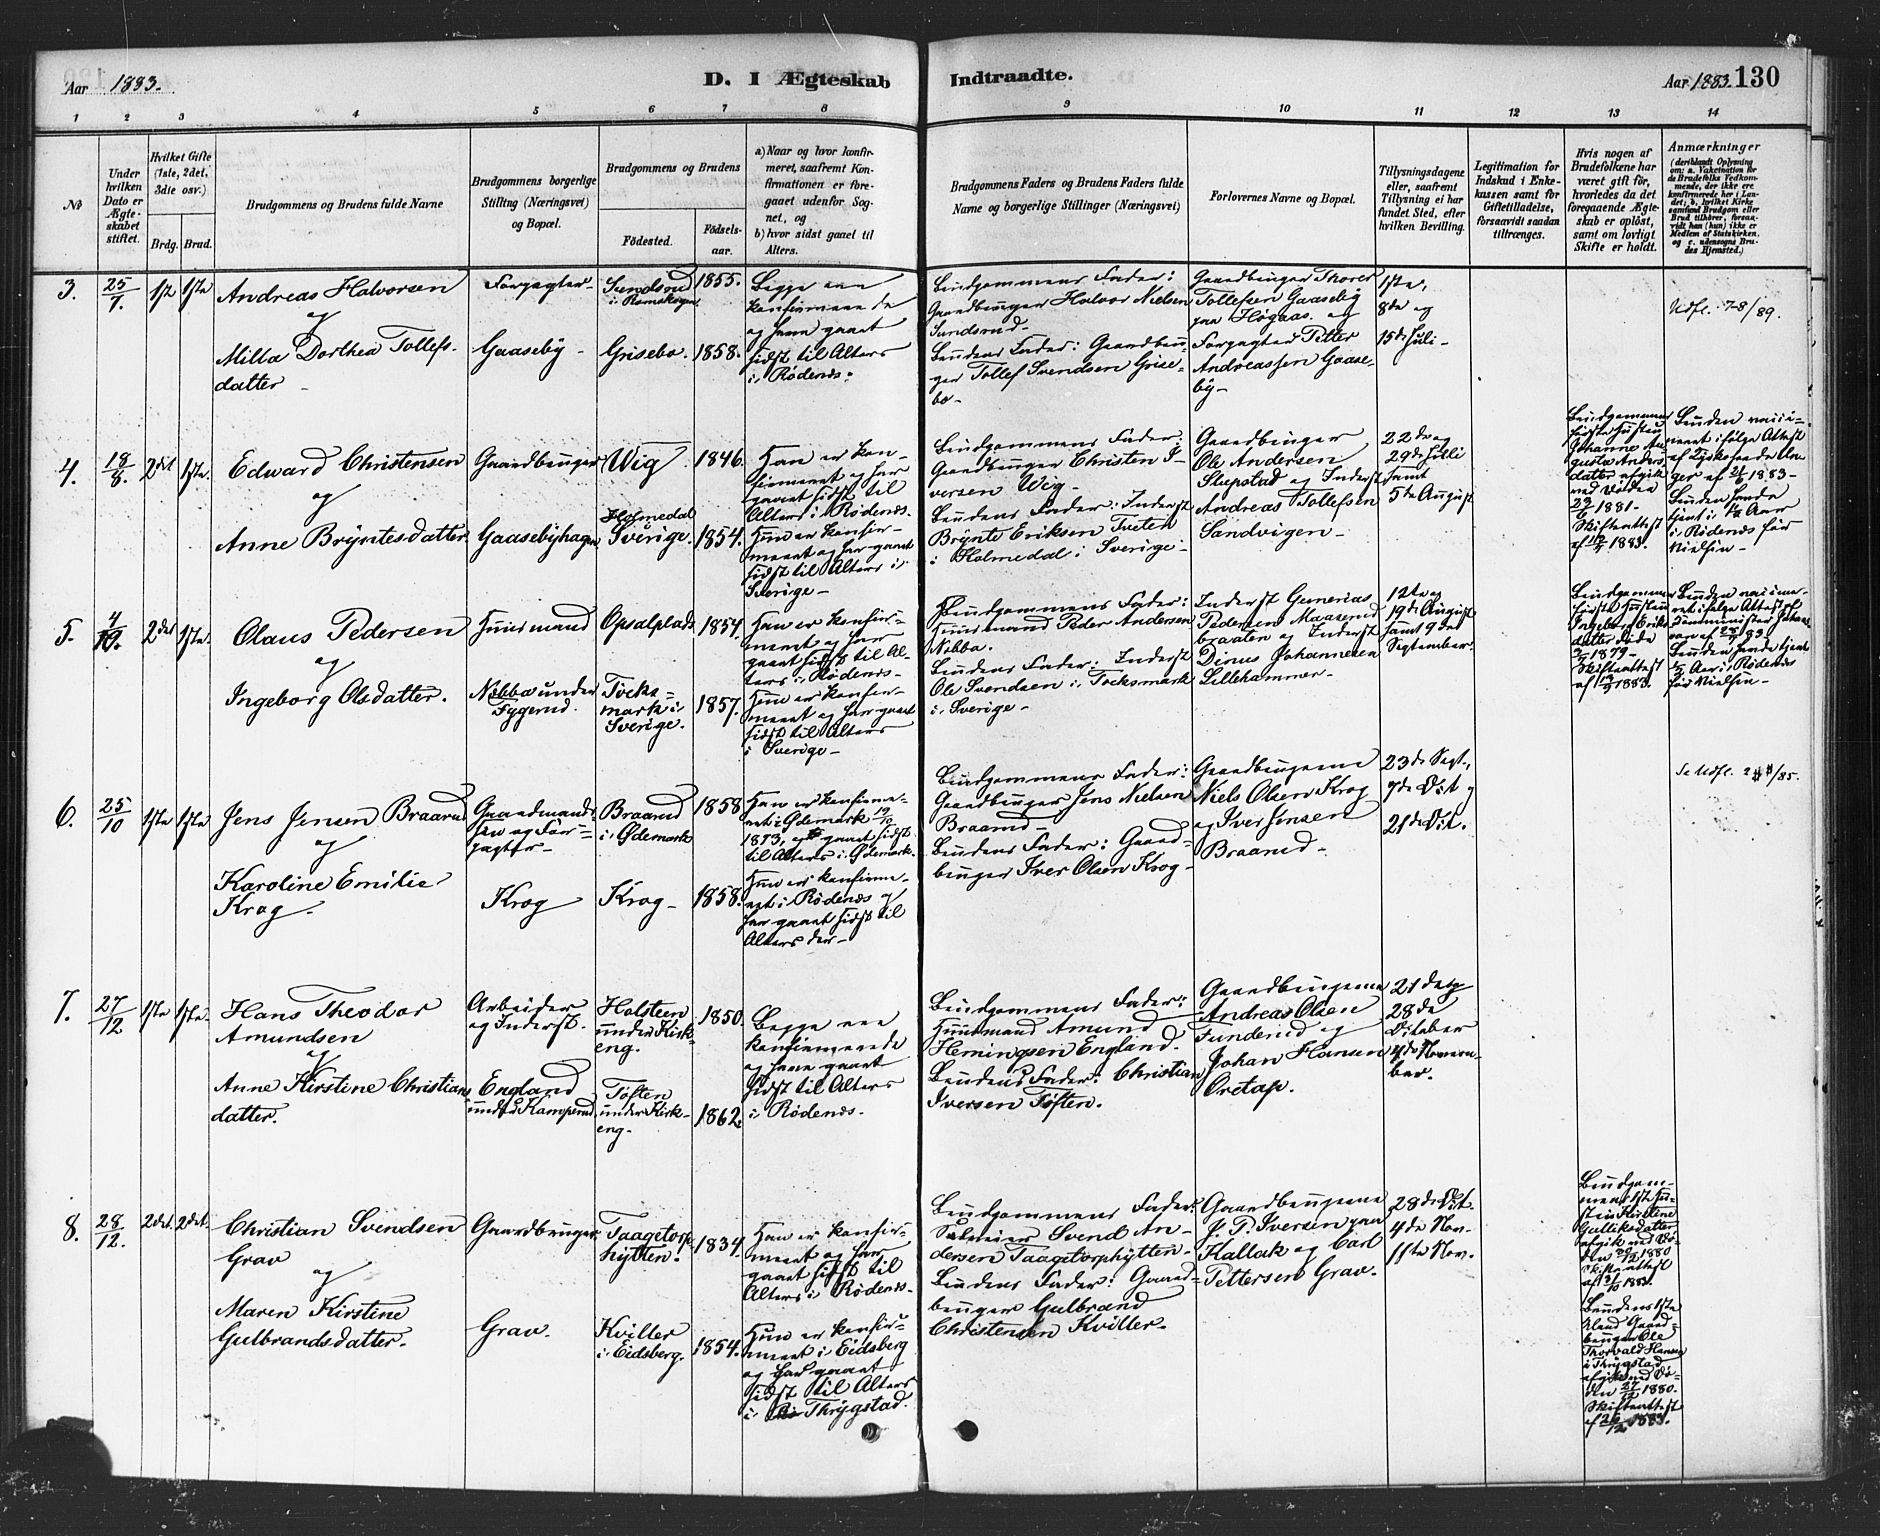 Aar 1883.
D. I Ægteskab
Indtraadte.
Aar 1883. 130
1 2 3 4 5 6 7 8 9 10 11 12 13 14
No
Under
hvilken
Dato er
Ægte-
skabet
stiftet.
Hvilket Gifte
(1ste, 2det,
3die osv.)
Brdg. Brud.
Brudgommens og Brudens fulde Navne
Brudgommens borgerlige
Stilling (Næringsvei)
og Bopæl.
Brudgommens og Brudens
Fødested.
Fødsels-
aar.
a) Naar og hvor konfir-
meret, saafremt Kon-
firmationen er fore-
gaaet udenfor Sog-
net, og
b) hvor sidst gaaet til
Alters.
Brudgommens Faders og Brudens Faders fulde
Navne og borgerlige Stillinger (Næringsvei)
Forlovernes Navne og Bopæl.
Tillysningsdagene
eller, saafremt
Tillysning ei har
fundet Sted, efter
hvilken Bevilling.
Legitimation for
Indskud i Enke-
kassen samt for
Giftetilladelse,
forsaavidt saadan
tiltrænges.
Hvis nogen af
Brudefolkene har
været gift før,
hvorledes da det
foregaaende Ægte-
skab er opløst,
samt om lovligt
Skifte er holdt.
Anmærkninger
(deriblandt Oplysning
om: a. Vaksination for
de Brudefolks Vedkom-
mende, der ikke ere
konfirmerede her i Lan-
det; b. hvilket Kirke
samfund Brudgom eller
Brud tilhører, forsaa-
vidt han (hun) ikke er
Medlem af Statskirken,
og c. udensogns Bru-
des Hjemsted.)
3. 25/7. 1ste 1ste
Andreas Halvorsen
og
Milla Dorthea Tollefs-
datter
Forpagter
Gaaseby
Sundsrud
i Rømskogen
Grisebo.
1855.
1858.
Begge ere
konfirmerede
og have gaaet
sidst til Alters
i Rødenæs.
Brudgommens Fader:
Gaardbruger Halvor Nielsen
Sundsrud
Brudens Fader: Gaardbru-
ger Tollef Svendsen Grise-
bo
Gaardbruger Thorer
Tollefsen Gaaseby
paa Høgaas og
Forpagter Petter
Andreassen Gaase-
by
1ste,
8de og
15de Juli
Udfl. 7-8/89.
4. 18/8. 2det 1ste.
Edward Christensen
og
Anne Bryntesdatter.
Gaardbruger
Gaasebyhagen
Wig
Holmedal
Sverige.
1846.
1854.
Han er kon-
firmeret og har
gaaet sidst til
Alters i Rødenæs.
Hun er konfir-
meret og har gaaet
sidst til Alters i
Sverige
Brudgommens Fader:
Gaardbruger Christen I-
versen Wig
Brudens Fader: Inderst
Brynte Eriksen Tveten
i Holmedal i Sverige
Gaardbruger
Ole Andersen
Slupstad og Inderst
Andreas Tollefsen
Sandvigen
22de og
29de Juli
samt
5te August
Brudgommens
første Hustru
Johanne Au-
gusta Anders-
datter afgik
ved Døden
1881.
Skifteattest
af 1883.
Bruden vacci-
neret ifølge Attest
af
af 1883
Bruden havde
tjent i Aar
i Rødenæs før
Vielsen
5. 4/9. 2det 1ste.
Olaus Pedersen
og
Ingeborg Olsdatter.
Huusmand
Nebba under
Fygerud.
Opsalplads
Tocks-
mark i
Sverige.
1854.
1857.
Han er konfir-
meret og har
gaaet sidst til Al-
ters i Rødenæs.
Hun er konfir-
meret og har gaaet
sidst til Alters
i Sverige
Brudgommens Fader:
Huusmand Peder Andersen
Nebba.
Brudens Fader: Inderst
Ole Svendsen i Tocksmark
i Sverige
Inderst Gunerias
Pedersen Maaserud-
braaten og Inderst
Dinus Johannesen
Lillehammer
12te og
19de August
samt
September
Brudgommens
første Hustru
Ingeborg Eriks-
datter døde
1879
Skifteattest
af 1883.
Bruden vaccine-
ret ifølge Attest af
83.
Bruden havde tjent
Aar i Rødenæs
før Vielsen
6. 25/10 1ste 1ste
Jens Jensen Braarud
og
Karoline Emilie
Krog.
Gaardmands-
søn og For-
pagter
Krog
Braarud
i Ødemark
Krog
1858
1858.
Han er konfirme-
ret i Ødemark 19/10
1873, og gaaet sidst
til Alters i Ødemark.
Hun er konfirme-
ret i Rødenæs og
har gaaet sidst til
Alters der
Brudgommens Fader:
Gaardbruger Jens Nielsen
Braarud
Brudens Fader: Gaard-
bruger Iver Olsen Krog
Gaardbrugerne
Niels Olsen Krog
og Iver Jensen
Braarud
23de Sept.,
7de Oct og
21de Oct.
Se Udfl. /85.
7. 27/12 1ste 1ste.
Hans Theodor
Amundsen
og
Anne Kirstine Christians-
datter.
Arbeider
og Inderst.
England
under Kamperud
Holsteen
under Kirk-
eng.
Toften
under Kirk-
eng.
1850.
1862.
Begge ere
konfirmerede
og have gaaet
sidst til Alters
i Rødenæs.
Brudgommens Fader:
Huusmand Amund
Hemingsen England.
Brudens Fader: Christian
Iversen Toften.
Gaardbrugerne
Andreas Olsen
Funderud og
Johan Hansen
Oretap.
21de og
28de
October
4de Novem-
ber.
8. 28/12. 2det. 2det.
Christian Svendsen
Grav
og
Maren Kirstine
Gulbrandsdatter.
Gaardbruger
Grav.
Taagetorp-
hytten.
Kviller
i Eidsberg.
1834.
1854.
Han er konfir-
meret og har
gaaet sidst til
Alters i Rødenæs.
Hun er konfir-
meret i Eidsberg
og har gaaet
sidst til Alters
i Thrygstad.
Brudgommens Fader:
Selveier Svend An-
dersen Taagetorphytten
Brudens Fader: Gaard-
bruger Gulbrand
Christensen Kviller
Gaardbrugerne
J. P. Iversen paa
Kallak og Carl
Pettersen Grav.
28de Oct.
4de Nov.
11te Nov.
Brudgom-
mens 1ste Hu-
stru Kirstine
Gulliksdatter
afgik ved Dø-
den 1880
Skifteattest
af 1883.
Brudens 1ste
Mand Gaard-
bruger Ole
Thorvald Hansen
i Thrygstad
afgik ved Dø-
den 1880.
Skifteattest
af 1883.